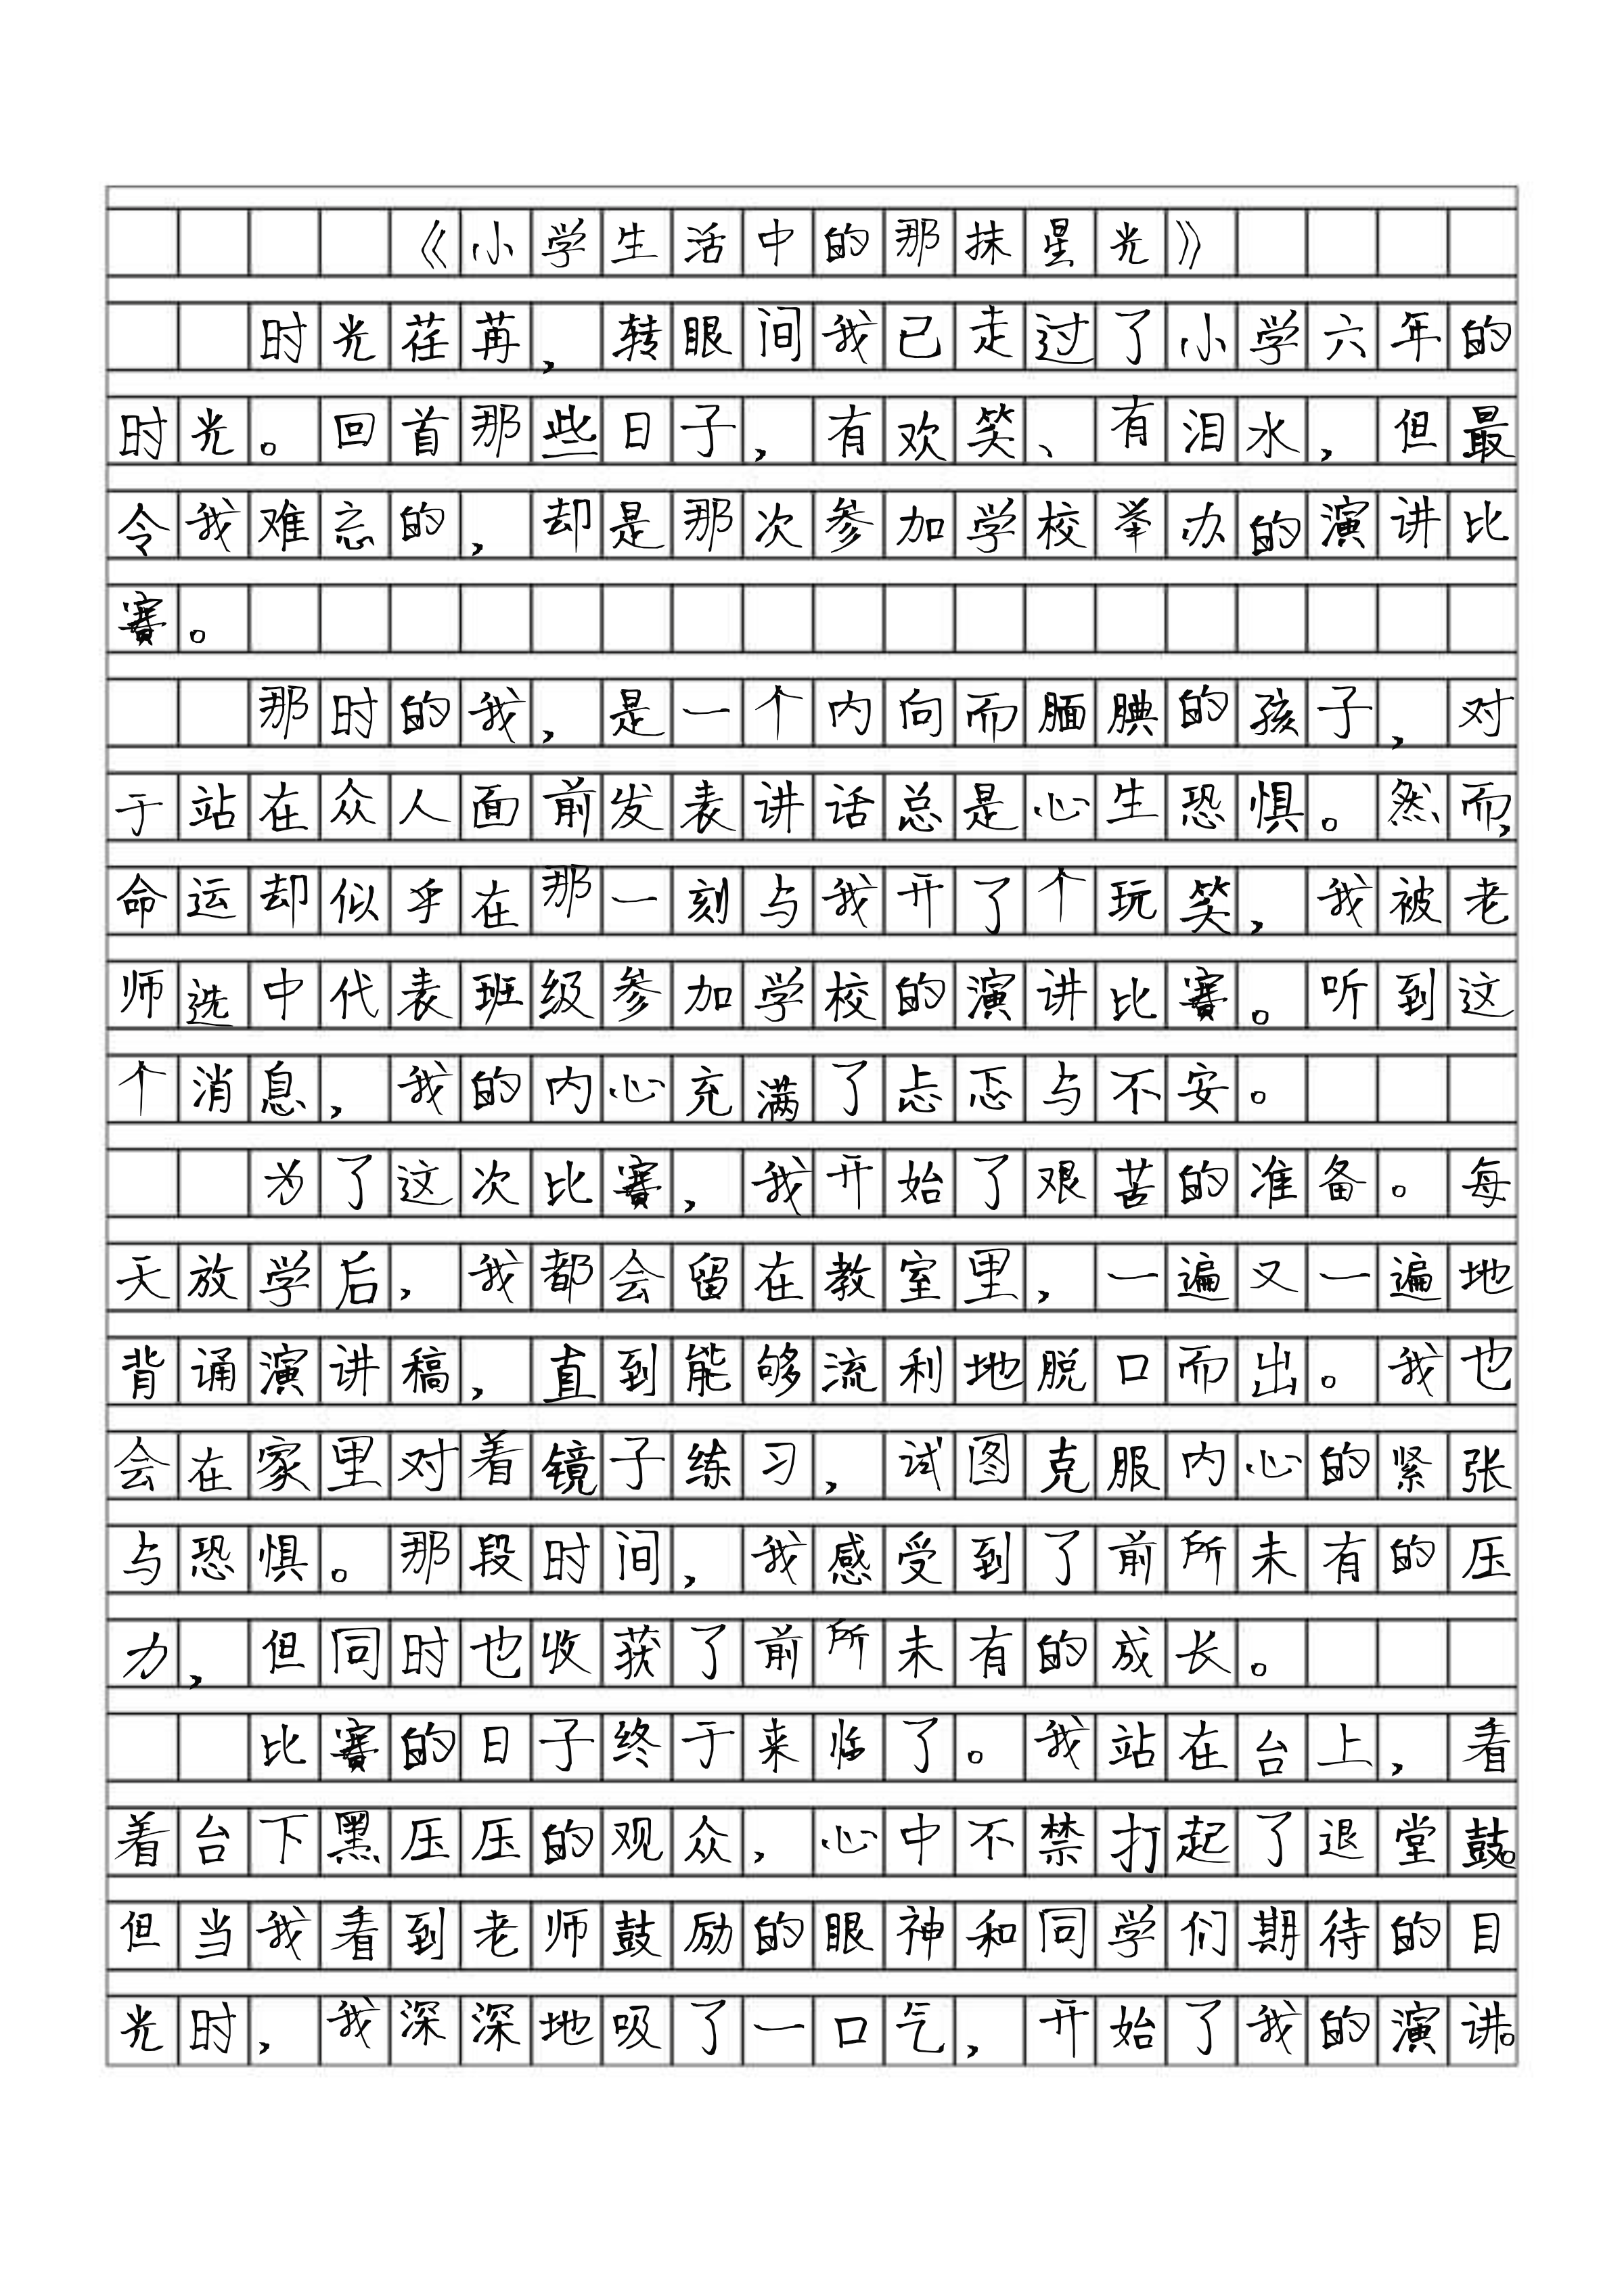 《小学生活中的那抹星光》
时光荏苒，转眼间我已走过了小学六年的
时光。回首那些日子，有欢笑、有泪水，但最
令我难忘的，却是那次参加学校举办的演讲比
赛。
那时的我，是一个内向而腼腆的孩子，对
于站在众人面前发表讲话总是心生恐惧。然而，
命运却似乎在那一刻与我开了个玩笑，我被老
师选中代表班级参加学校的演讲比赛。听到这
个消息，我的内心充满了忐忑与不安。
为了这次比赛，我开始了艰苦的准备。每
天放学后，我都会留在教室里，一遍又一遍地
背诵演讲稿，直到能够流利地脱口而出。我也
会在家里对着镜子练习，试图克服内心的紧张
与恐惧。那段时间，我感受到了前所未有的压
力，但同时也收获了前所未有的成长。
比赛的日子终于来临了。我站在台上，看
着台下黑压压的观众，心中不禁打起了退堂鼓。
但当我看到老师鼓励的眼神和同学们期待的目
光时，我深深地吸了一口气，开始了我的演讲。